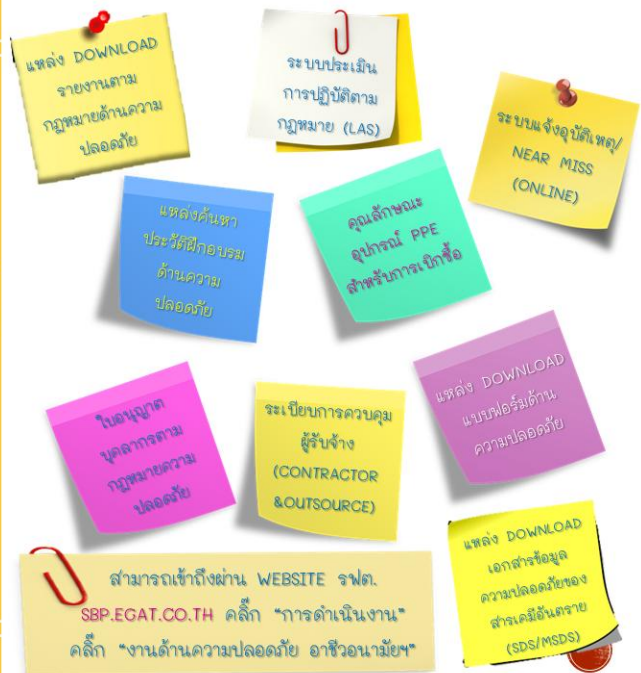 แหล่ง DOWNLOAD
รายงานตาม
กฎหมายด้านความ
ปลอดภัย
ระบบประเมิน
การปฏิบัติตาม
กฎหมาย (LAS)
ระบบแจ้งอุบัติเหตุ/
NEAR MISS
(ONLINE)
แหล่งค้นหา
ประวัติฝึกอบรม
ด้านความ
ปลอดภัย
คุณลักษณะ
อุปกรณ์ PPE
สำหรับการเบิกซื้อ
ใบอนุญาต
บุคลากรตาม
กฎหมายความ
ปลอดภัย
ระเบียบการควบคุม
ผู้รับจ้าง
(CONTRACTOR
&OUTSOURCE)
แหล่ง DOWNLOAD
แบบฟอร์มด้าน
ความปลอดภัย
แหล่ง DOWNLOAD
เอกสารข้อมูล
ความปลอดภัยของ
สารเคมีอันตราย
(SDS/MSDS)
สามารถเข้าถึงผ่าน WEBSITE รฟต.
SBP.EGAT.CO.TH คลิ๊ก “การดำเนินงาน”
คลิ๊ก “งานด้านความปลอดภัย อาชีวอนามัยฯ”